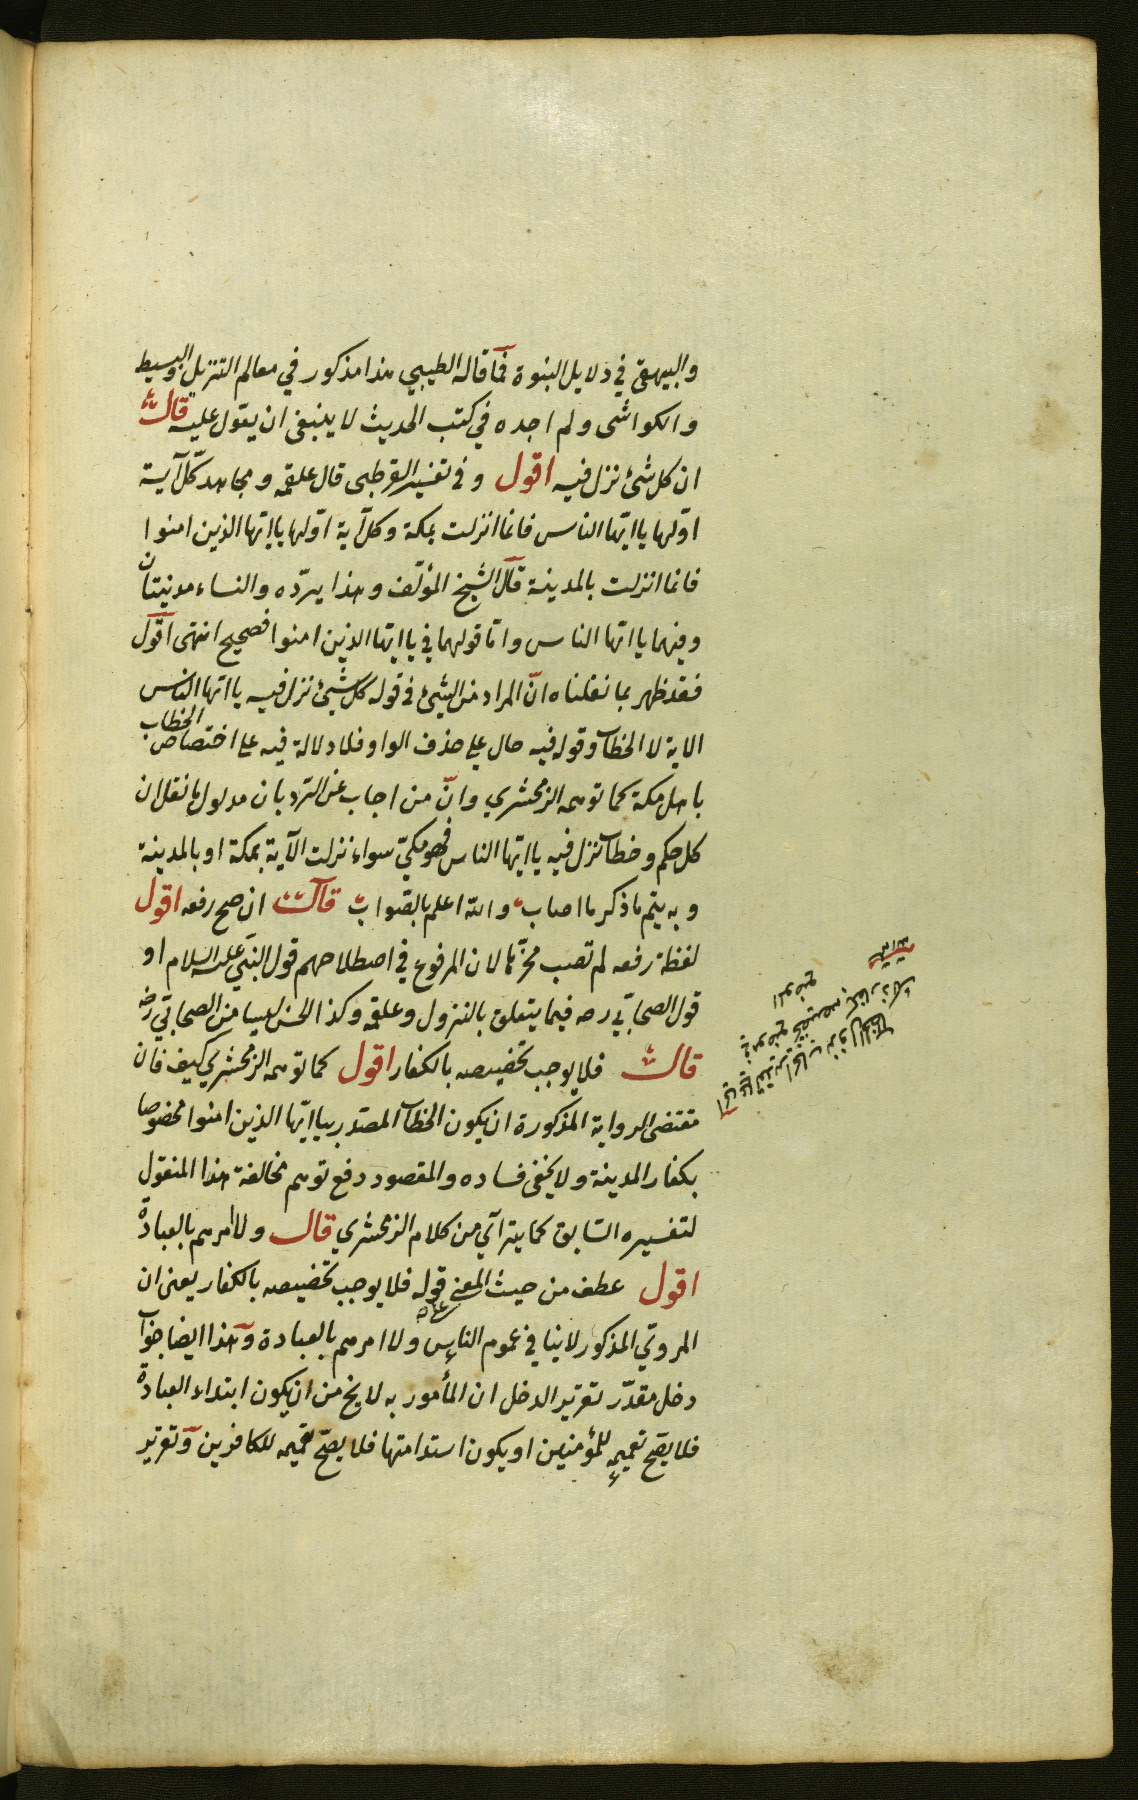 والبيهقي في دلايل النبوة فما قاله الطيبي هذا مذكور في معالم التنزيل والوسيط
والكواشى ولم اجده في كتب الحديث لا ينبغى ان يعوّل عليه قال
ان كل شئ نزل فيه اقول وفي تفسير القرطبى قال علقمه ومجاهد كل آية
اوّلها يا ايّها الناس فانما انزلت بمكة وكل آية اوّلها يا ايّها الذين امنوا
فانما انزلت بالمدينة قال الشيخ المؤلّف وهذا يردّه والنساء مدنيتان
وفيهما يا ايّها الناس وامّا قولهما في يا ايّها الذين امنوا فصحيح انتهى اقول
فقد ظهر بما نقلناه انّ المراد من الشئ في قوله كل شئ نزل فيه يا ايّها الناس
الاية لا الخطاب وقوله فيه حال على حذف الواو فلا دلالة فيه على اختصاص الخطاب
باهل مكة كما توهمه الزمخشري وانّ من اجاب عن الترد بان مدلول ما نقل ان
كل حكم وخطاب نزل فيه يا ايّها الناس فهو مكيّ سواء نزلت الآية بمكة او بالمدينة
وبه يتم ما ذكر ما اصاب والله اعلم بالصواب قال ان صح رفعه اقول
لفظة رفعه لم تصب محزّها لان المرفوع في اصطلاحهم قول النبّي عليه السلام او
قول الصحابّي رضه فيما يتعلق بالنزول وعلقمه وكذا الحسن ليسا من الصحابّي رضه
قال فلا يوجب تخصيصه بالكفار اقول كما توهمه الزمخشري كيف فان
مقتضى الرواية المذكورة ان يكون الخطاب المصدر بيا ايّها الذين امنوا مخصوصا
بكفار المدينة ولا يخفى فساده والمقصود دفع توهم مخالفة هذا المنقول
لتفسيره السّابق كما يتراآي من كلام الزمخشري قال ولا امرهم بالعبادة
اقول عطف من حيث المعنى على قوله فلا يوجب تخصيصه بالكفار يعنى ان
المرويّ المذكور لا ينافي عموم الناس ولا امرهم بالعبادة وهذا ايضا جواب
دخل مقدّر تقرير الدخل ان المأمور به لا يخ من ان يكون ابتداء العبادة
فلا يصّح تعميمه للمؤمنين او يكون استدامتها فلا يصّح تعميمه للكافرين وتقرير